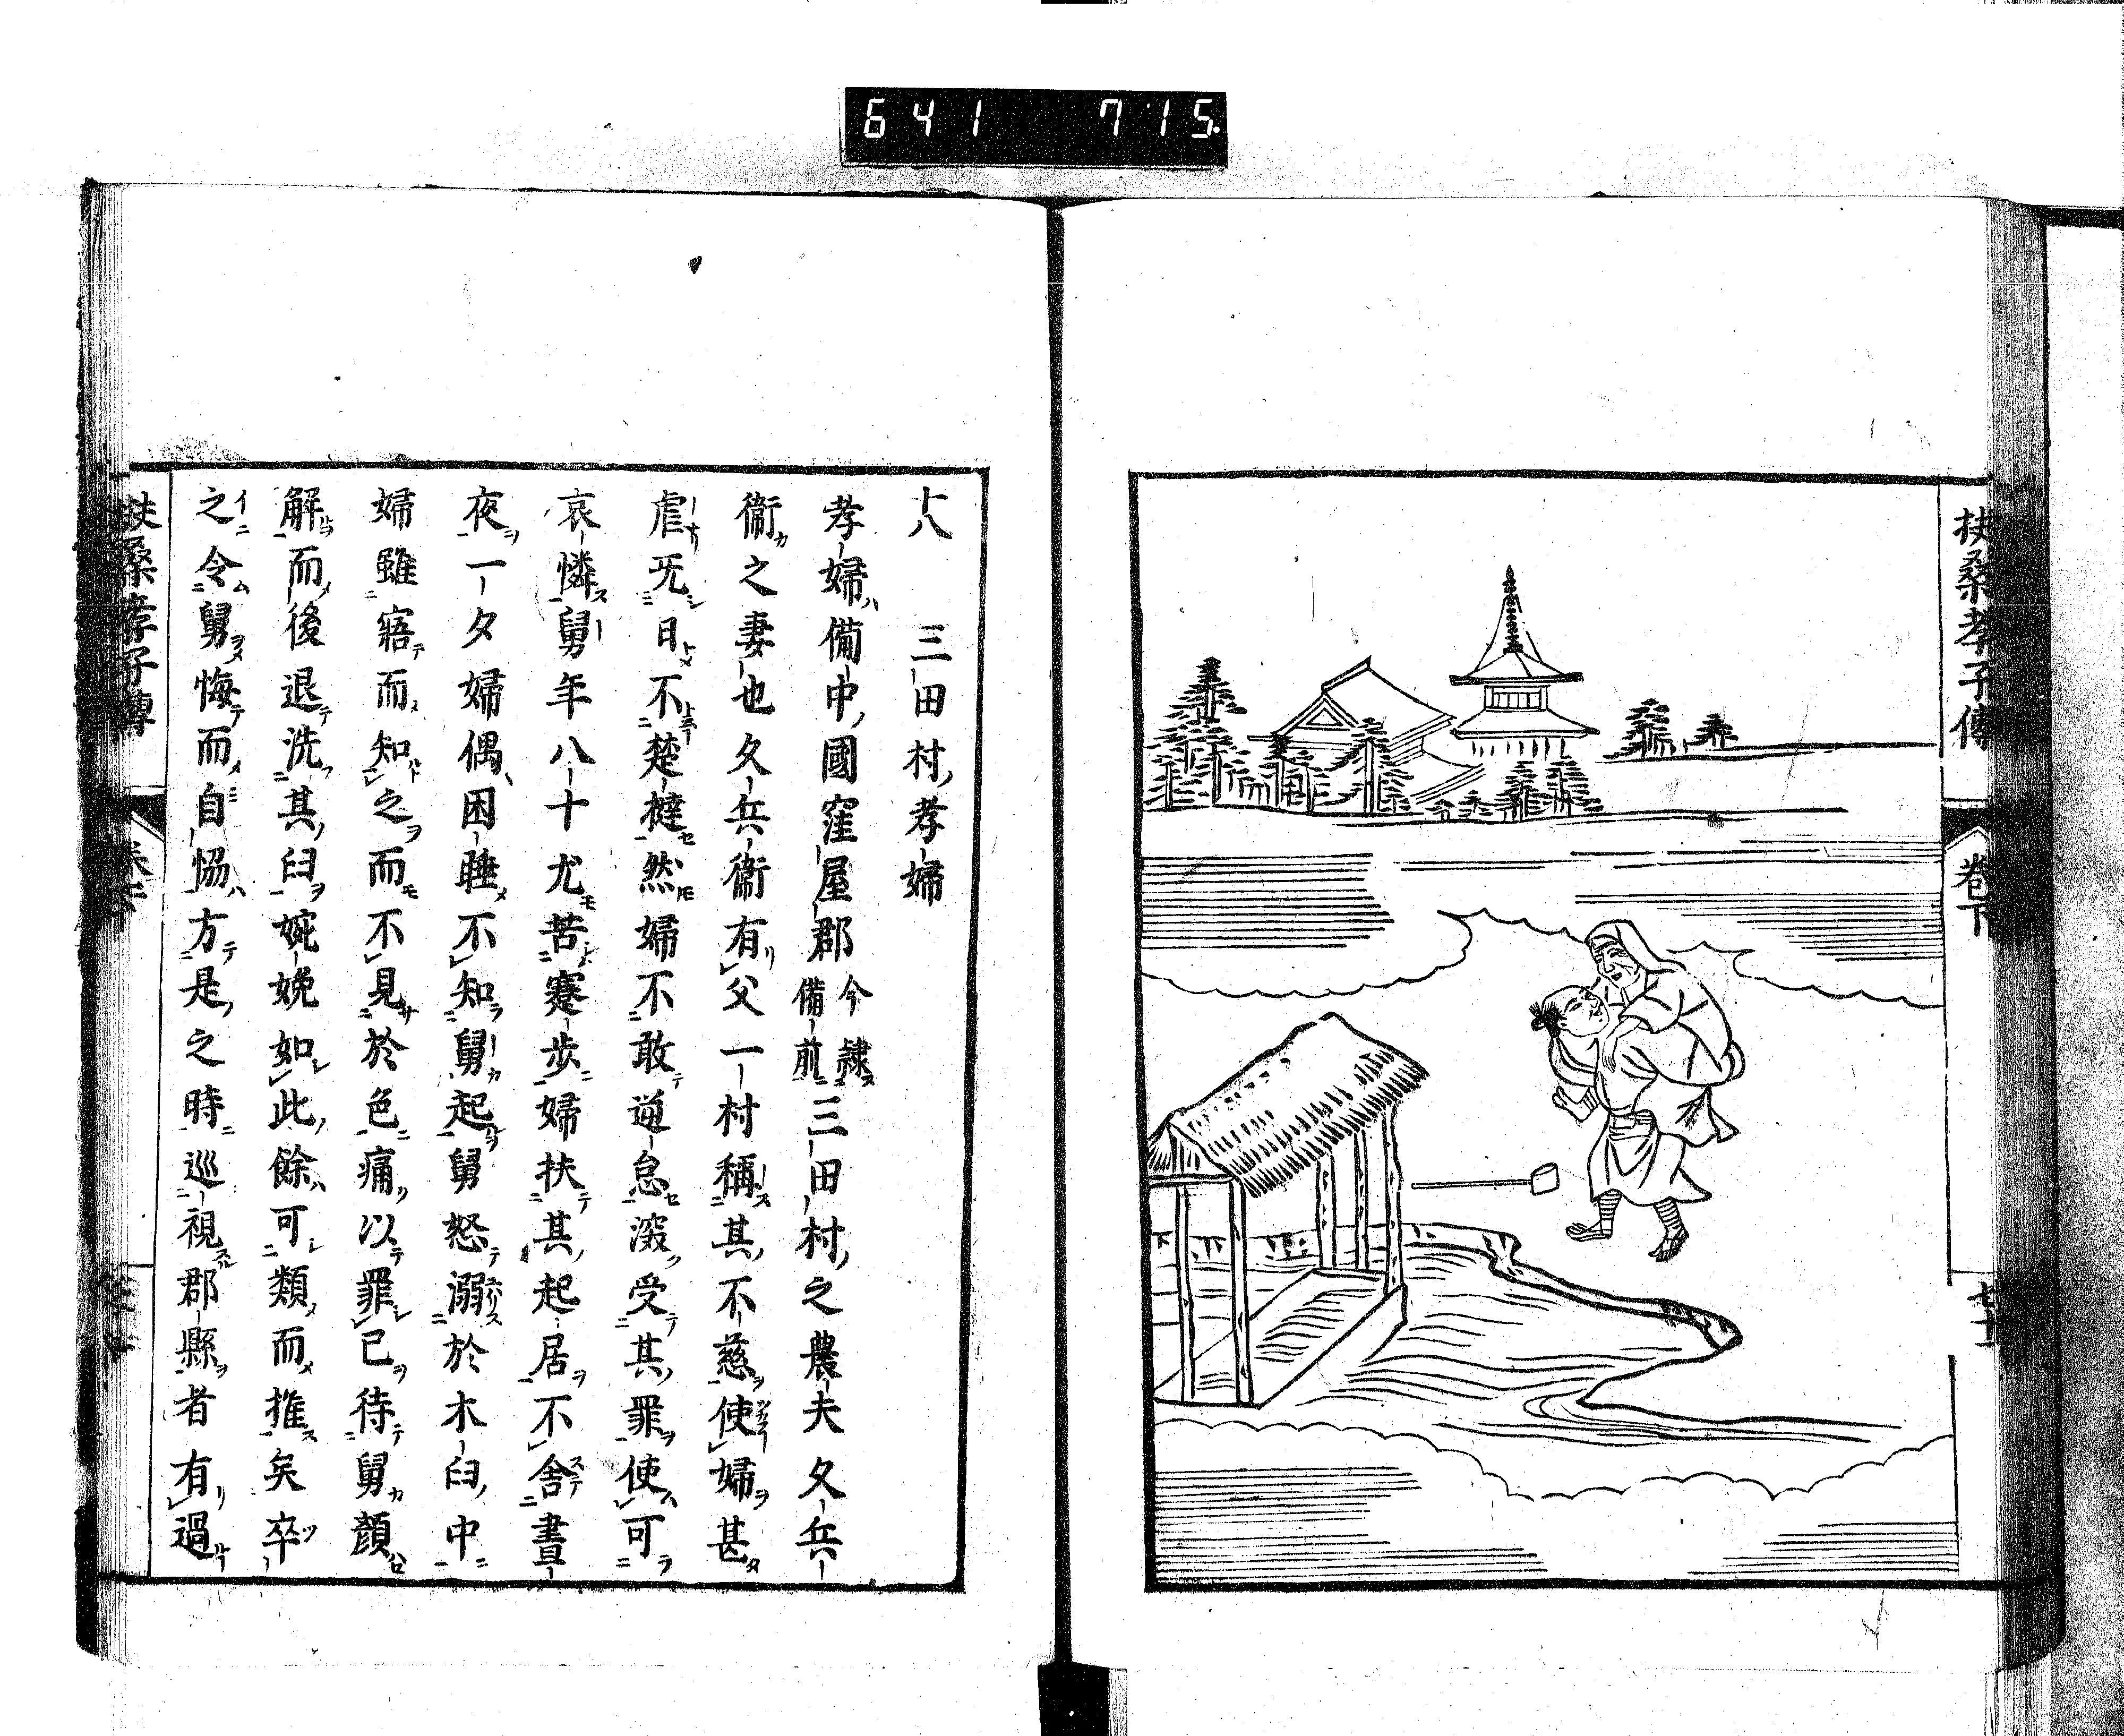 641 715.
扶桑孝子傳
卷下
十八　三田村孝婦
孝婦備中國窪屋郡今隸備前三田村之農夫久兵
衞之妻也久兵衞有父一村稱其不慈使婦甚
虐无日不楚撻然婦不敢逆怠深受其罪使可
哀憐舅年八十尤苦蹇步婦扶其起居不舍晝
夜一夕婦偶困睡不知舅起舅怒溺於木臼中
婦雖寤而知之而不見於色痛以罪已待舅顏
解而後退洗其臼婉娩如此餘可類而推矣卒
之令舅悔而自恊方是之時巡視郡縣者有過
扶桑孝子傳
卷下